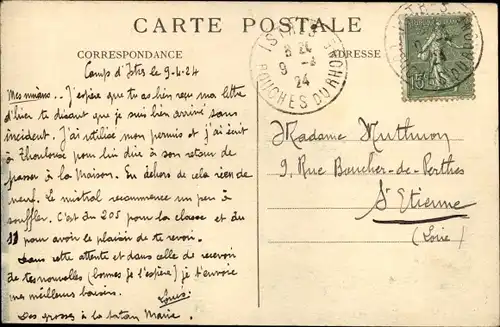 CARTE POSTALE
CORRESPONDANCE
ADRESSE
Camp d'Istres le 9-4-24
J'espère que tu as bien reçu ma lettre
d'hier te disant que je suis bien arrivé sans
incident. J'ai utilisé mon permis et j'ai écrit
à pour lui dire à son retour de
passer à la Maison. En dehors de cela rien de
neuf. Le mistral recommence un peu à
souffler. C'est du 205 pour la classe et du
11 pour avoir le plaisir de te revoir.
Dans cette attente et dans celle de recevoir
de tes nouvelles (bonnes je l'espère) je t'envoie
mes meilleurs baisers.
Louis
Des grosses à la tatan Marie.
Madame
9, Rue Boucher-de-Perthes
St Etienne
(Loire)
BOUCHES DU RHONE
9 -4
24
15